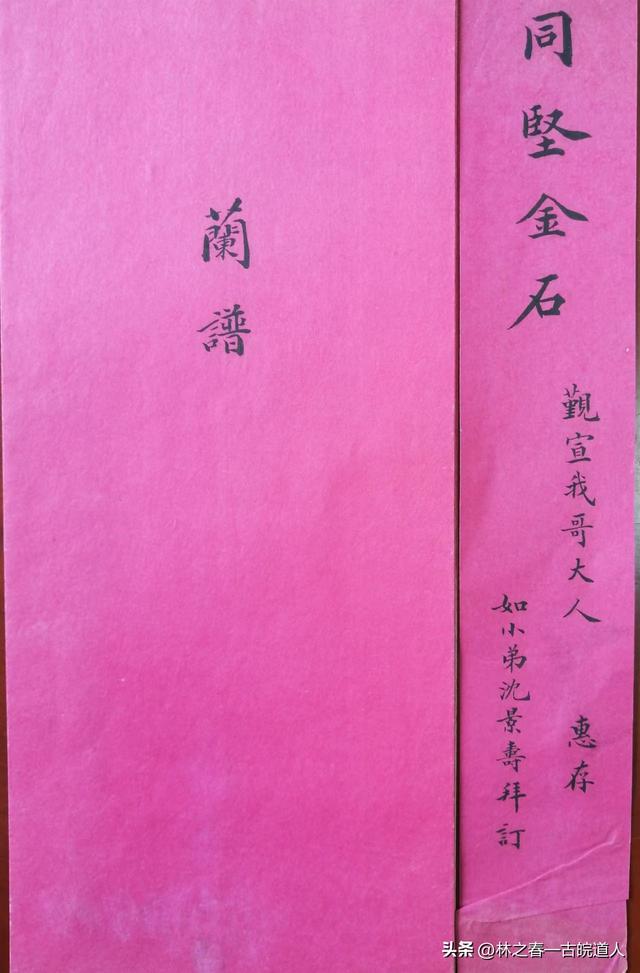 同堅金石
覲宣我哥大人 惠存
如小弟沈景壽拜訂
蘭譜
头条 @林之春—古皖道人